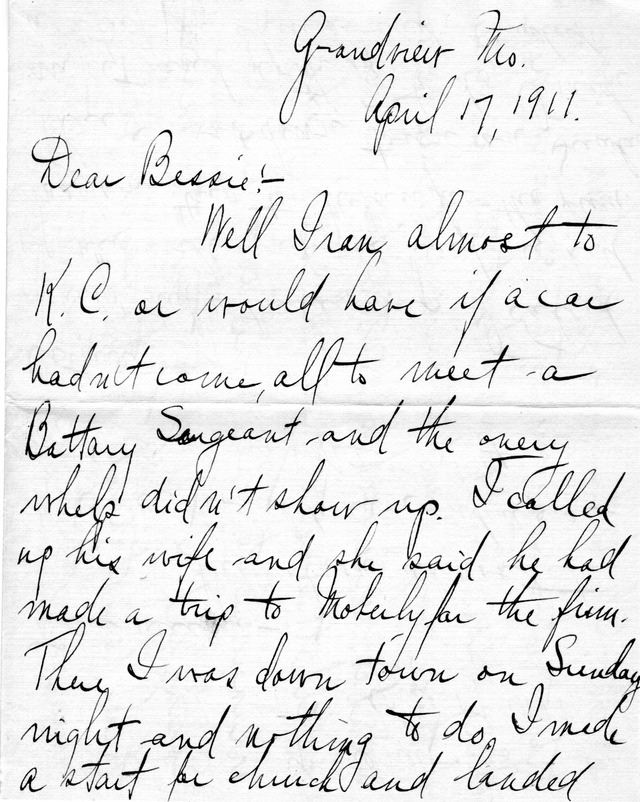 Grandview Mo.
April 17, 1911.
Dear Bessie:-
Well I ran almost to
K. C. or would have if a car
hadn't come, all to meet a
Battary Sergeant and the onery
whelp didn't show up. I called
up his wife and she said he had
made a trip to Moberly for the firm.
There I was down town on Sunday
night and nothing to do. I made
a start for church and landed